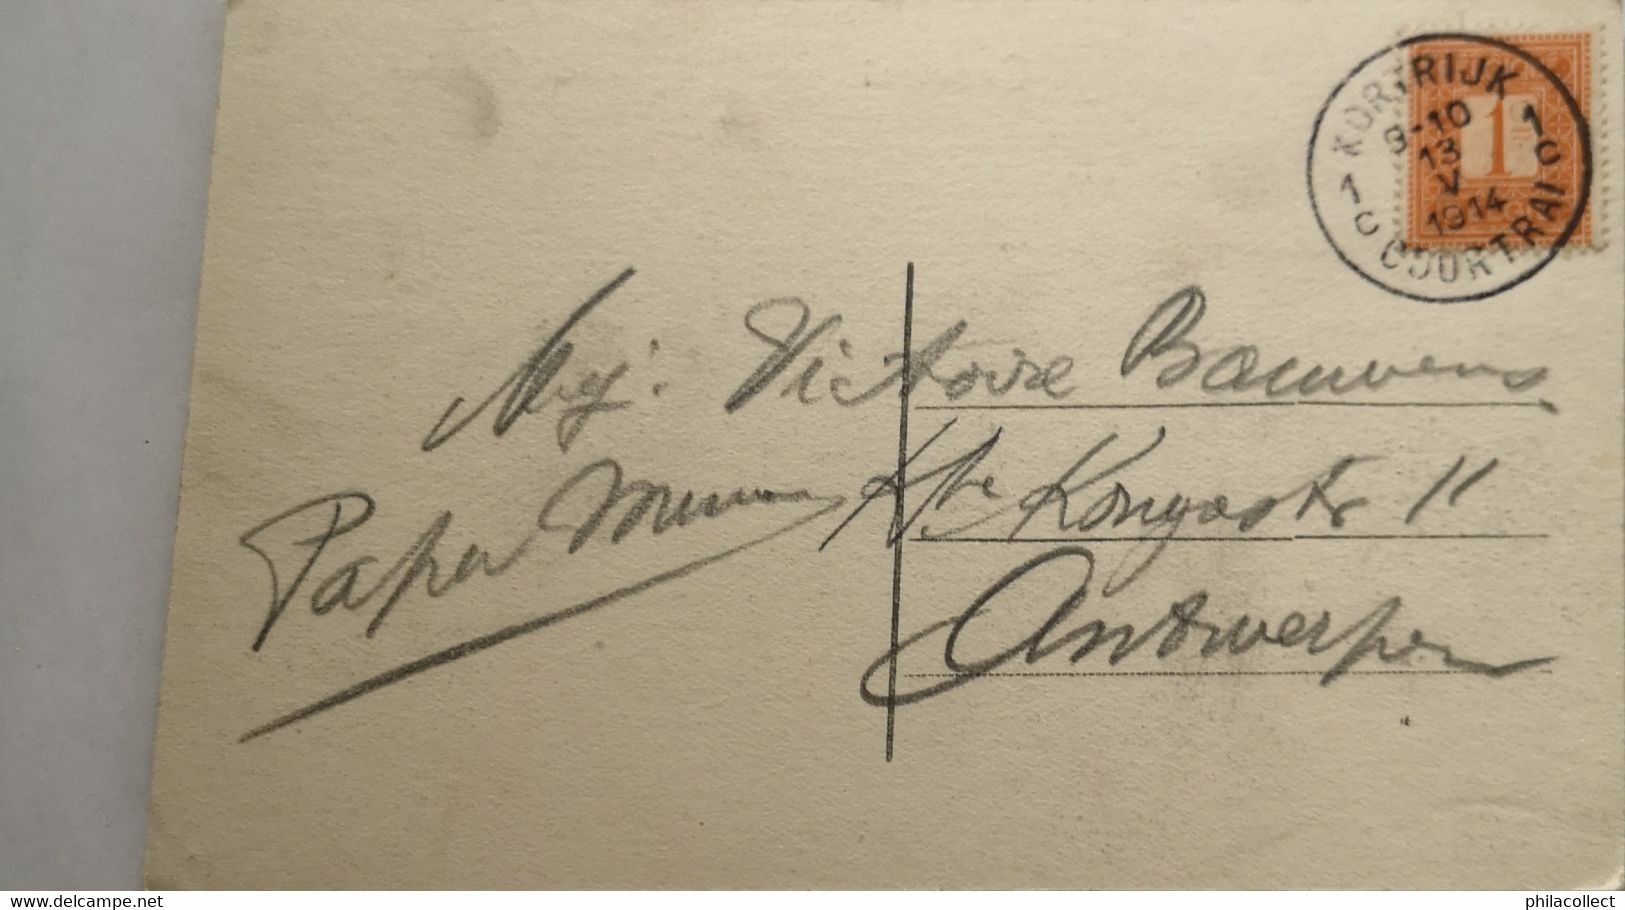 KORTRIJK
9-10
13
V
1914
1C COURTRAI 1C
1
Mej. Victoire Bauwens
Kte Kongostr 11
Antwerpen
delcampe.net
philacollect